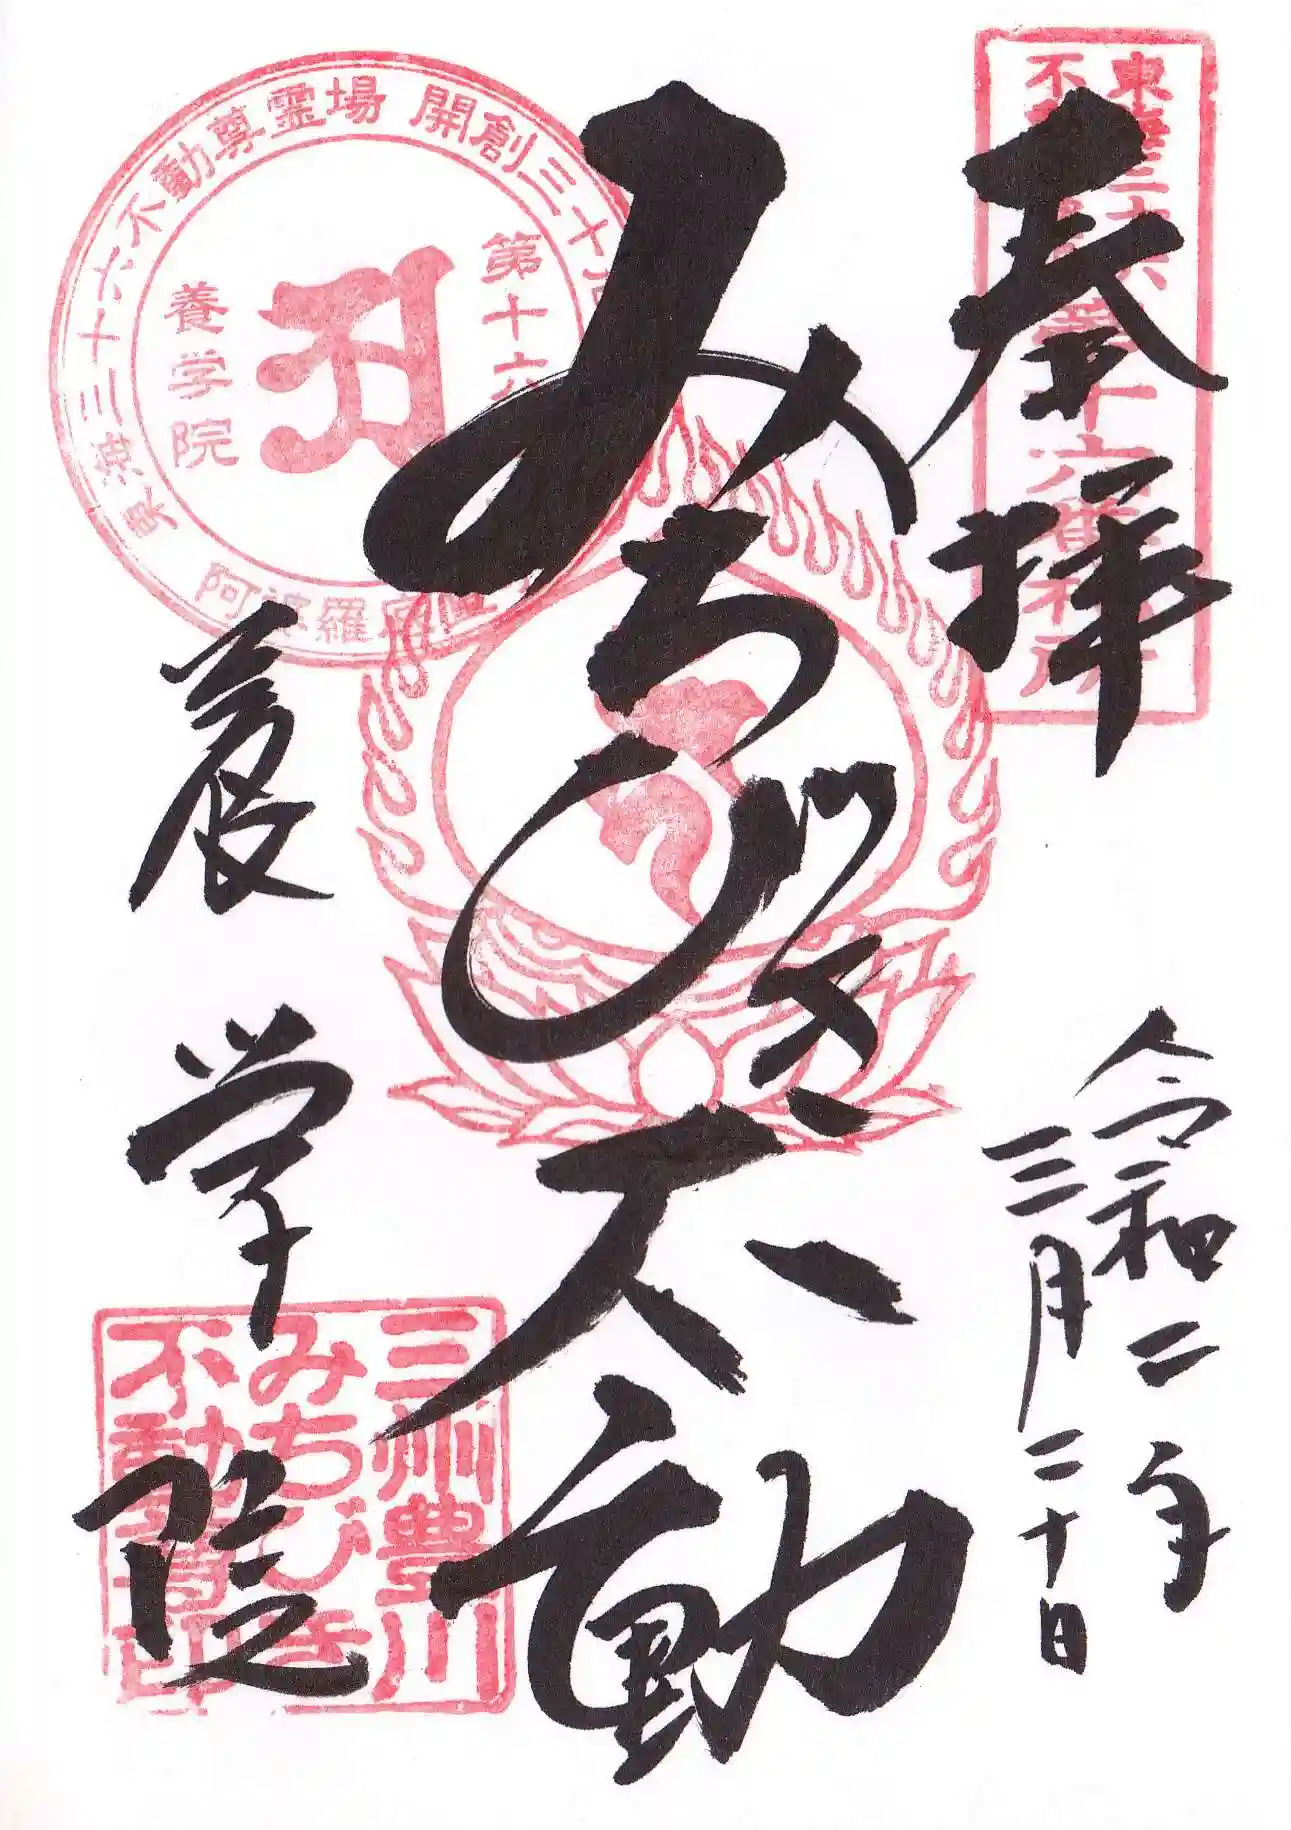 奉拝
令和二年
三月二十日
みちびき不動
養学院
東海三十六
不動尊霊場
第十六番札所
東海三十六不動尊霊場 開創三十
第十六
養学院
阿波羅
三州豊川
みちびき
不動尊